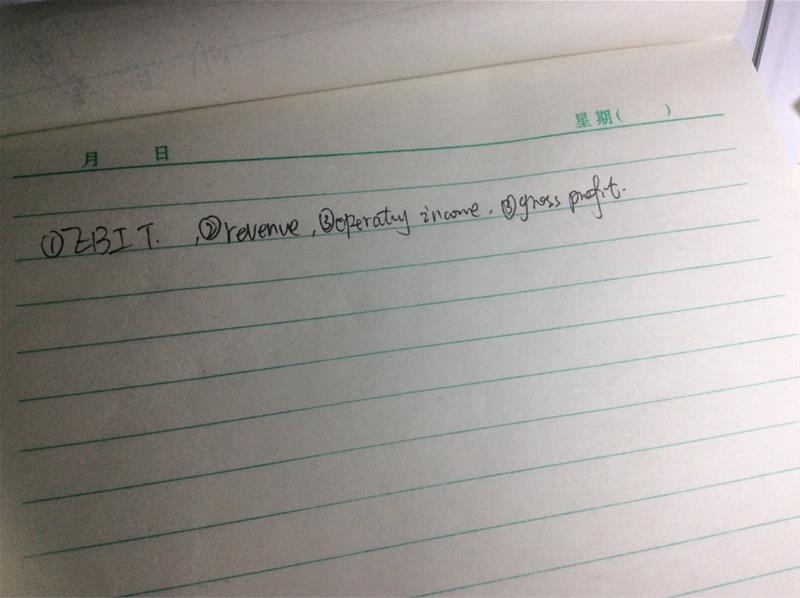 月 日 星期( )
①EBIT. ,②revenue,③operaty income. ③gross profit.